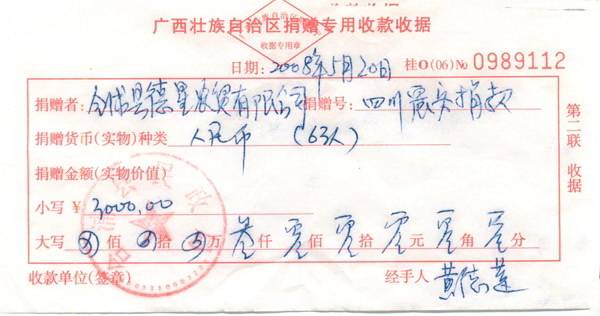 广西壮族自治区捐赠专用收款收据
收据专用章
日期:2008年5月20日 桂O(06)№0989112
捐赠者:全州县德星农贸有限公司 捐赠号:四川震灾捐款
捐赠货币(实物)种类 人民币 (63人)
捐赠金额(实物价值)
小写¥ 3000.00
大写 佰 拾 万 叁仟 零佰 零拾 零元 零角 零分
收款单位(签章) 经手人 黄德莲
第二联 收据